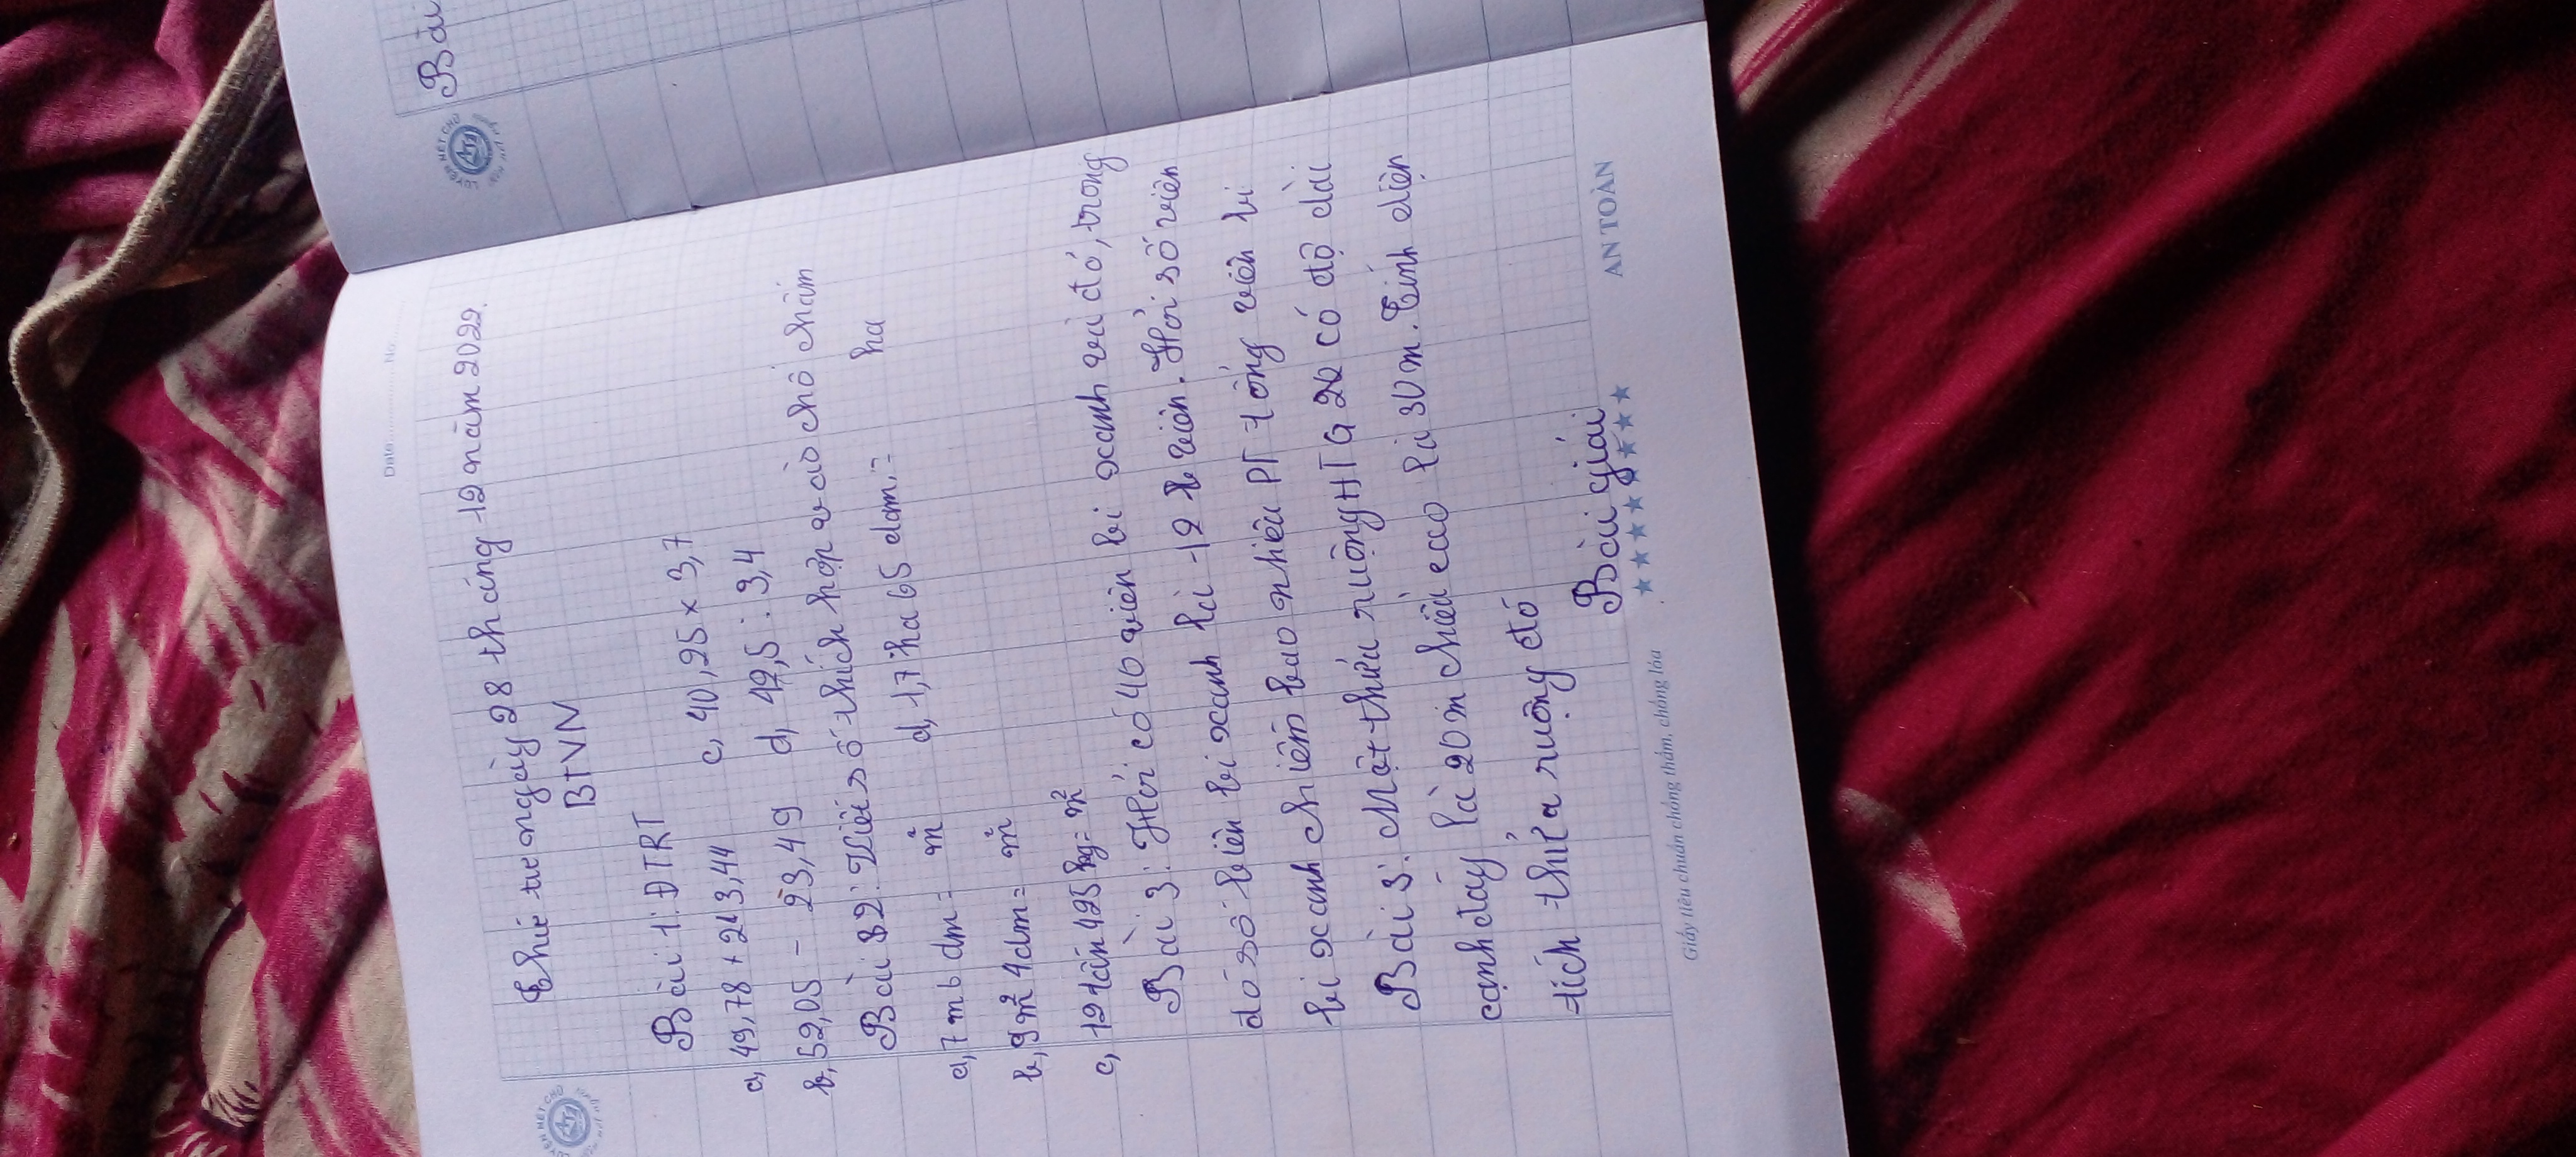 Date............ No............
Thứ tư ngày 28 tháng 12 năm 2022.
BTVN
Bài 1: ĐTRT
a, 49,78 + 213,44 c, 40,25 x 3,7
b, 52,05 - 23,49 d, 42,5 : 3,4
Bài 2: Viết số thích hợp vào chỗ chấm
a, 7 m 6 dm = m d, 1,7 ha 65 dam² = ha
b, 9 m² 4 dm = m²
c, 12 tấn 425 kg = m²
Bài 3: Hới có 40 viên bi xanh và đỏ, trong
đó số biên bi xanh là 12 b viên. Hỏi số viên
bi xanh chiếm bao nhiêu PT tổng viên bi
Bài 3: Một thửa ruộng HTG có độ dài
cạnh đáy là 20 m chiều cao là 30 m. Tính diện
tích thửa ruộng đó
Bài giải
Giấy tiêu chuẩn chống thấm, chống lóa
AN TOÀN
LUYỆN NÉT CHỮ
Bài